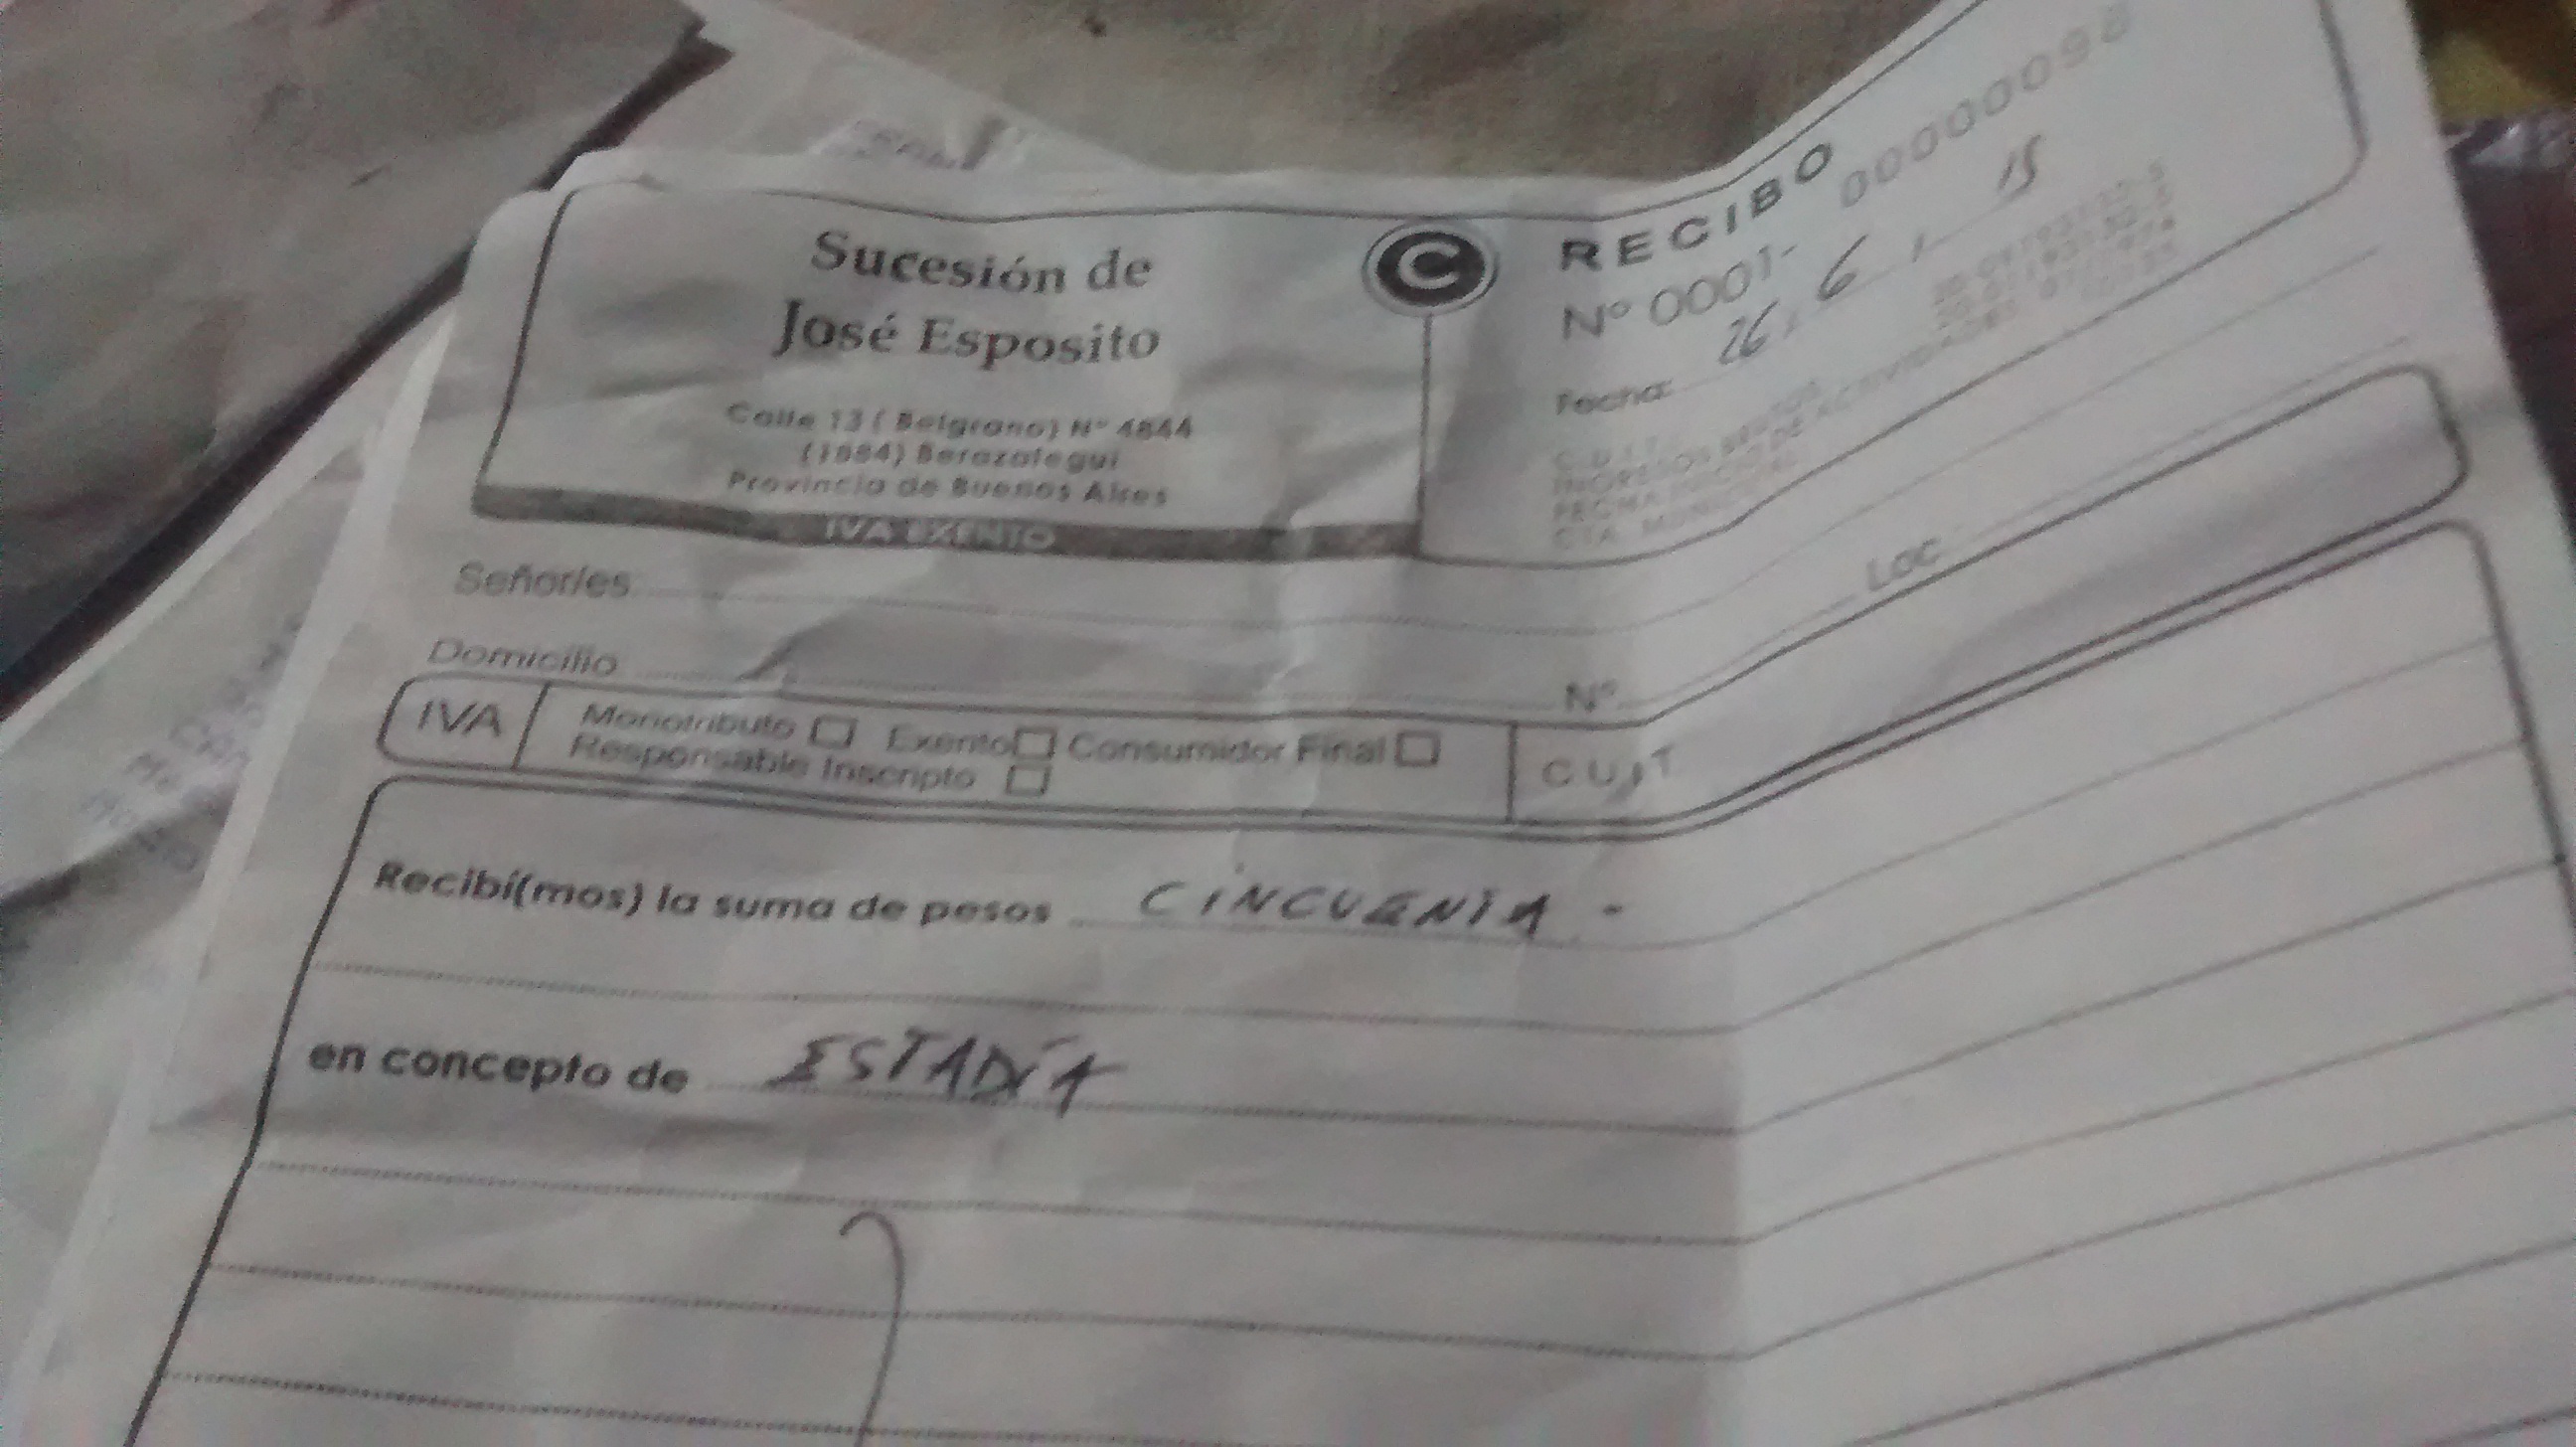 Sucesión de
José Esposito
Calle 13 ( Belgrano) Nº 4844
(1884) Berazategui
Provincia de Buenos Aires
IVA EXENTO
C
RECIBO
Nº 0001- 00000098
Fecha: 26 / 6 / 15
C.U.I.T.
INGRESOS BRUTOS
FECHA INICIO DE ACTIVIDADES
CTA. MUNICIPAL
Señor/es
Domicilio Nº Loc
IVA Monotributo Exento Consumidor Final
Responsable Inscripto
C U I T
Recibí(mos) la suma de pesos CINCUENTA -
en concepto de ESTADÍA